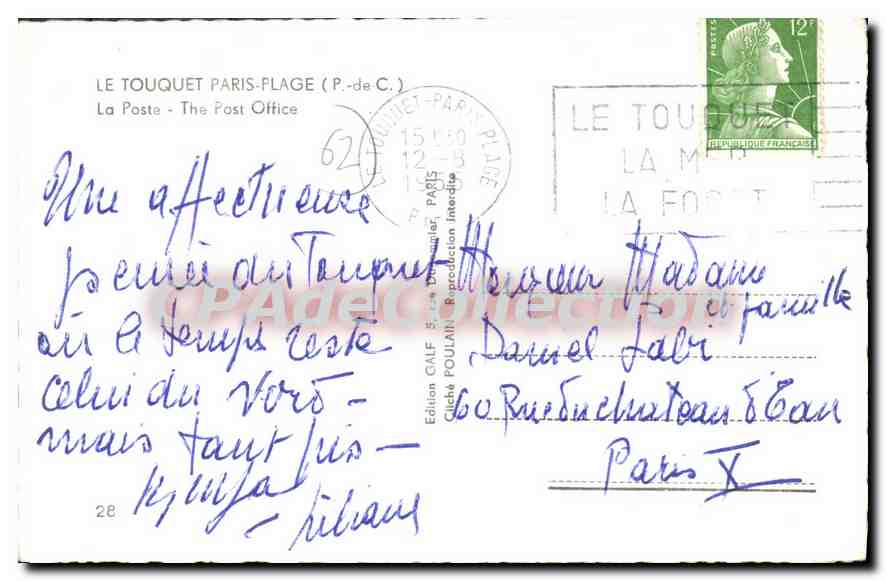 LE TOUQUET PARIS-PLAGE (P.-de C.)
La Poste - The Post Office
62
Une affectueuse
pensée du Touquet
où le temps reste
celui du Nord -
mais tant pis -
Liliane
28
Edition GALF 5, rue Dugommier, PARIS
Cliché POULAIN - Reproduction Interdite
LE TOUQUET-PARIS-PLAGE
15 H30
12 -8
LE TOUQUET
LA MER
LA FORET
POSTES
12F
REPUBLIQUE FRANÇAISE
Monsieur Madame
et famille
Daniel Labi
60 Rue du chateau d'Eau
Paris X
CPAdeCollection